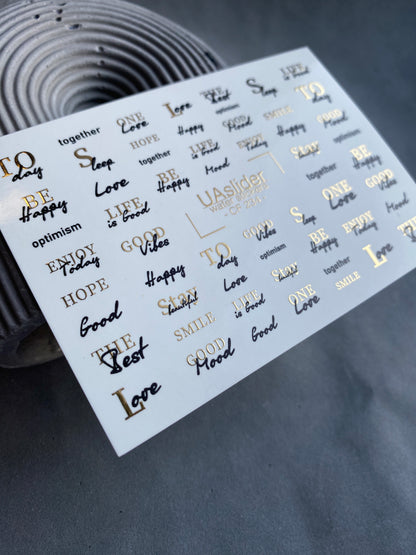 TO
day
together
ONE
Love
Love
The
Best
optimism
Sleep
LIFE
is Good
BE
Happy
Sleep
HOPE
Happy
GOOD
Mood
SMILE
TOday
optimism
Love
together
LIFE
is Good
ENJOY
Today
Happy
ENJOY
Today
LIFE
is Good
BE
Happy
Mood
Stay
together
BE
Happy
HOPE
GOOD
Vibes
UAslider
water stickers
Sleep
ONE
Love
GOOD
Vibes
Good
Happy
TOday
GOOD
Vibes
optimism
BE
Happy
ENJOY
Today
TO
THE
Best
Stay
beautiful
SMILE
LIFE
is Good
Stay
beautiful
together
Love
Love
GOOD
Mood
Good
ONE
Love
SMILE